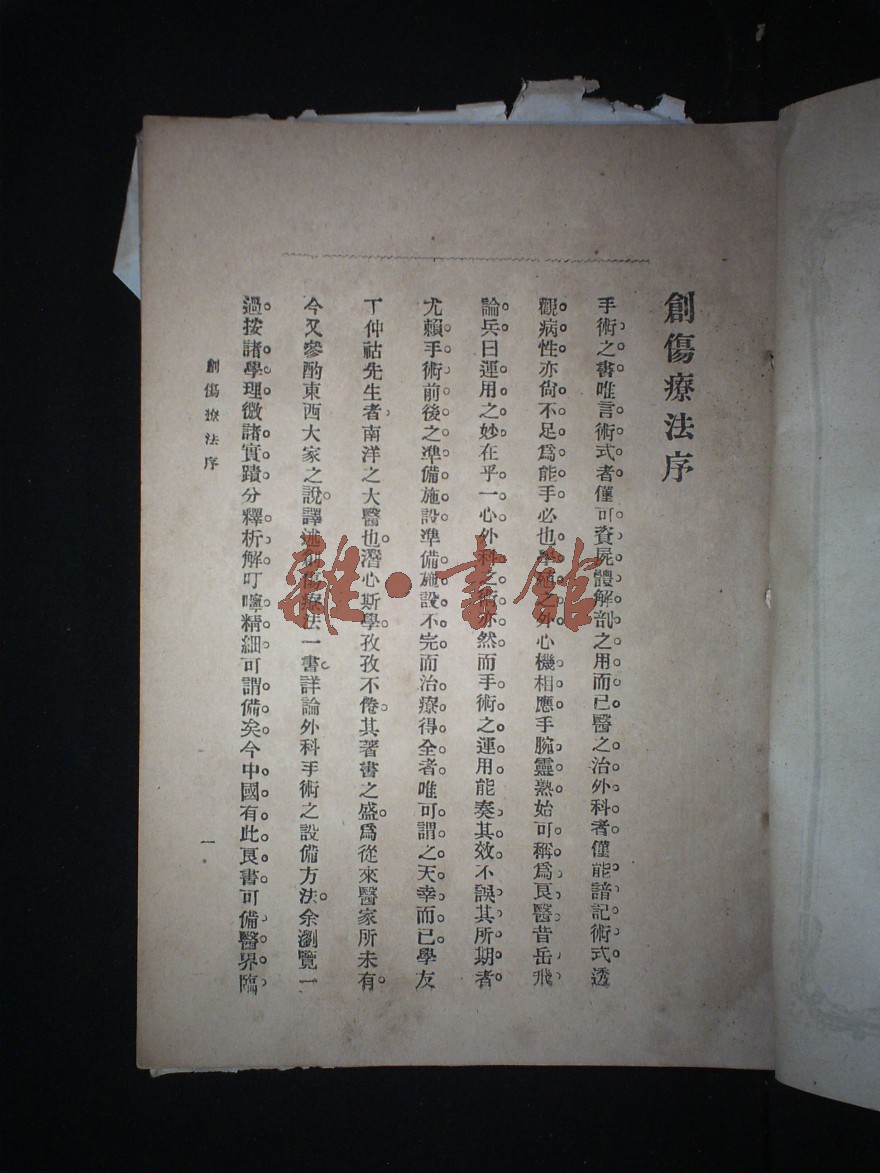 創傷療法序
手術之書唯言術式者僅可資屍體解剖之用而已醫之治外科者僅能諳記術式透
觀病性亦尙不足爲能手必也學之外心機相應手腕靈熟始可稱爲良醫昔岳飛
論兵曰運用之妙在乎一心外科之術亦然而手術之運用能奏其效不誤其所期者
尤賴手術前後之準備施設準備施設不完而治療得全者唯可謂之天幸而已學友
丁仲祜先生者南洋之大醫也潛心斯學孜孜不倦其著書之盛爲從來醫家所未有
今又參酌東西大家之說譯述創傷療法一書詳論外科手術之設備方法余瀏覽一
過按諸學理徵諸實蹟分釋析解叮嚀精細可謂備矣今中國有此良書可備醫界臨
創傷療法序
一
雜·書館